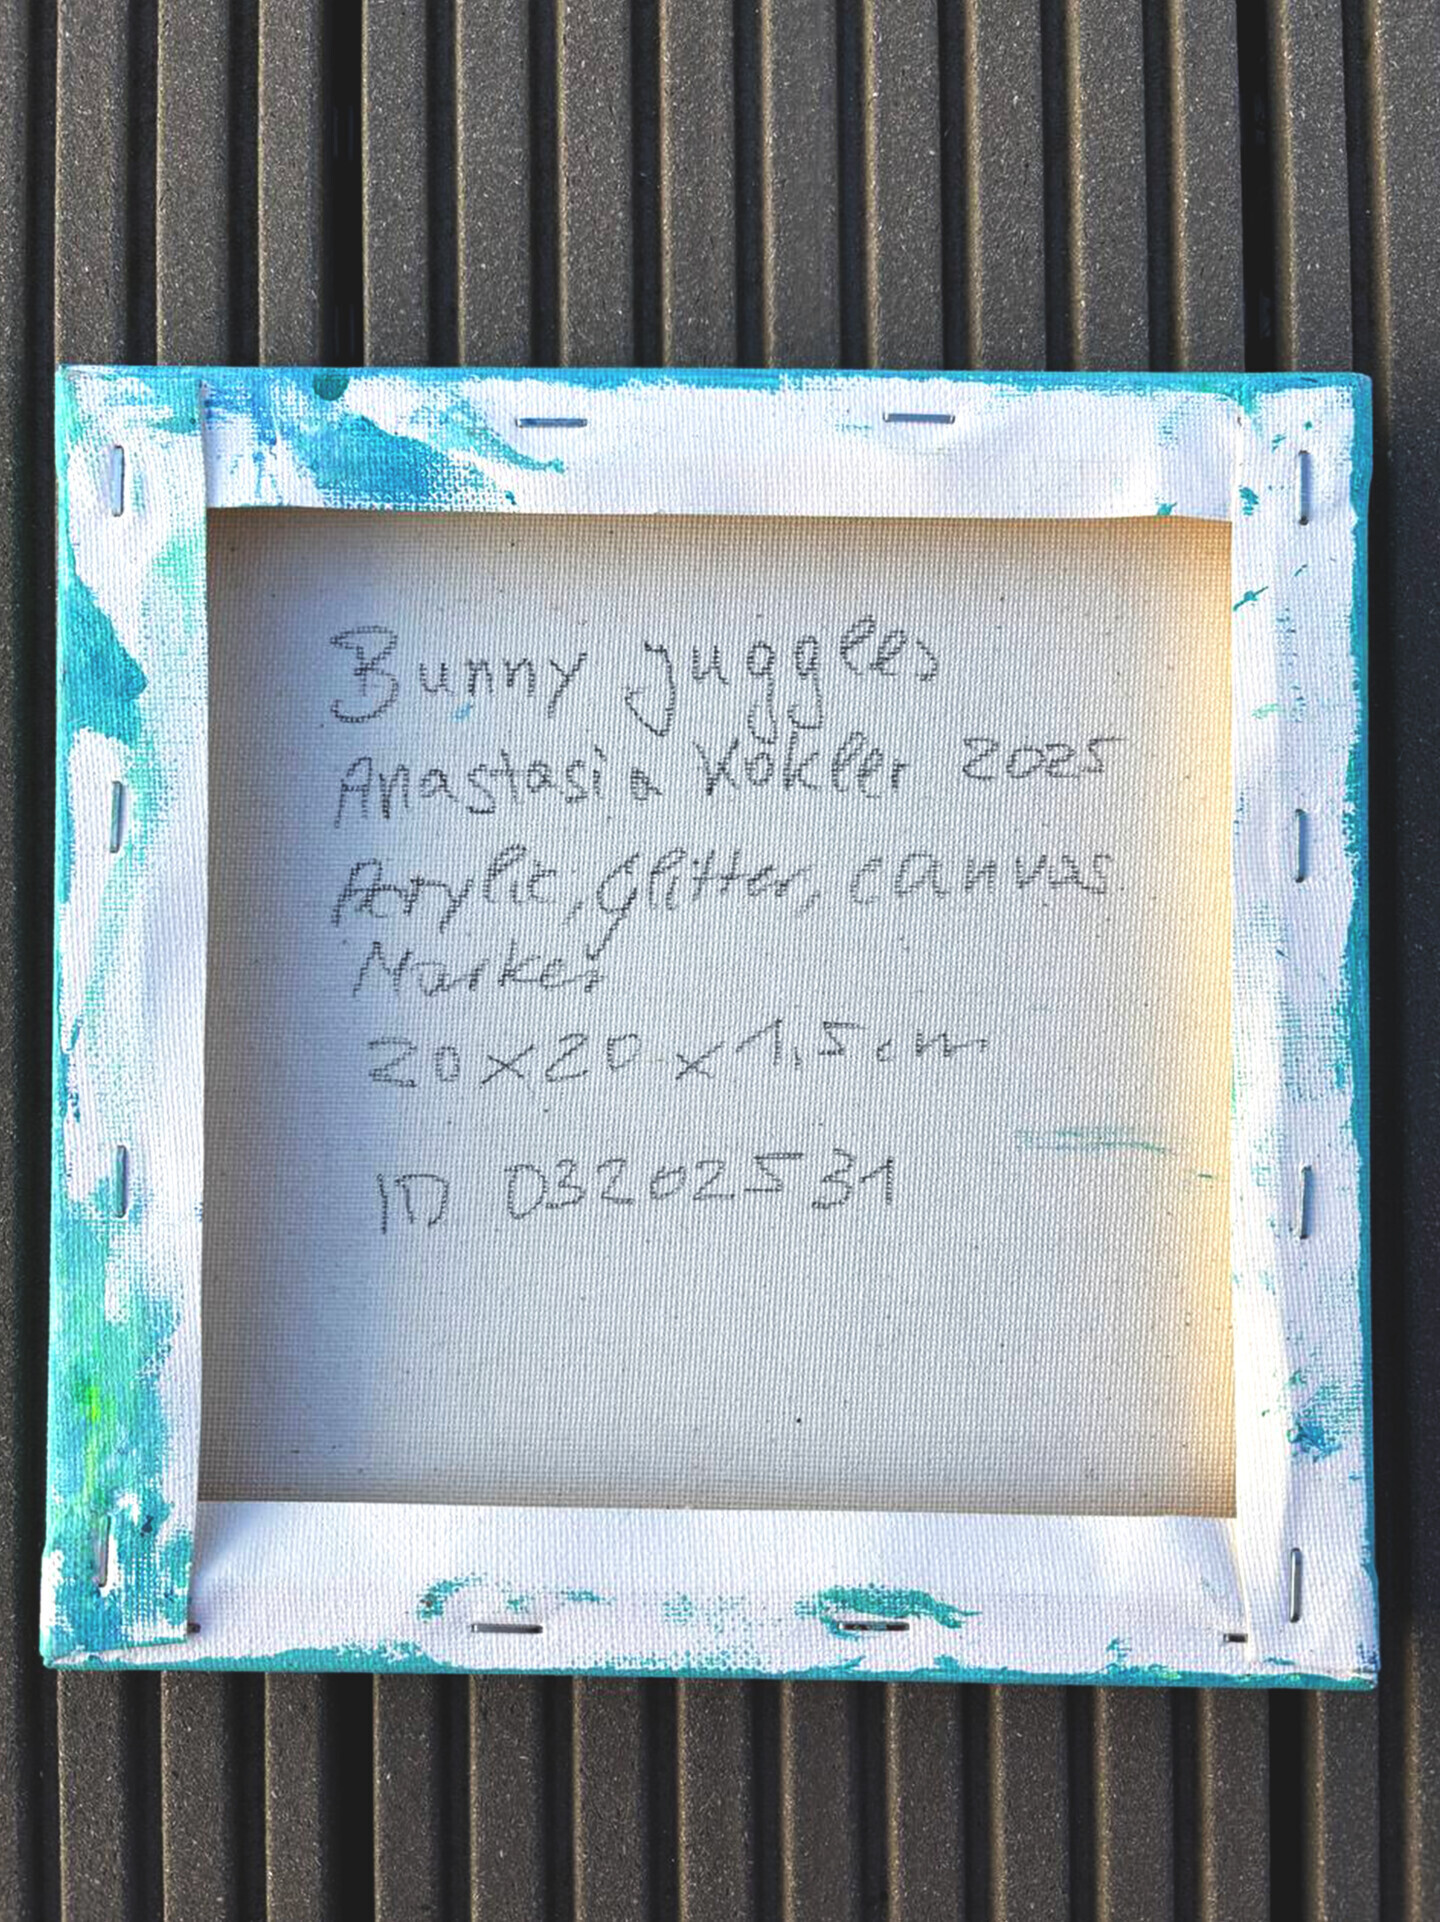 Bunny juggles
Anastasia Kokler 2025
Acrylic, Glitter, canvas
Marker
20x20 x 1,5 cm
ID 0320202531